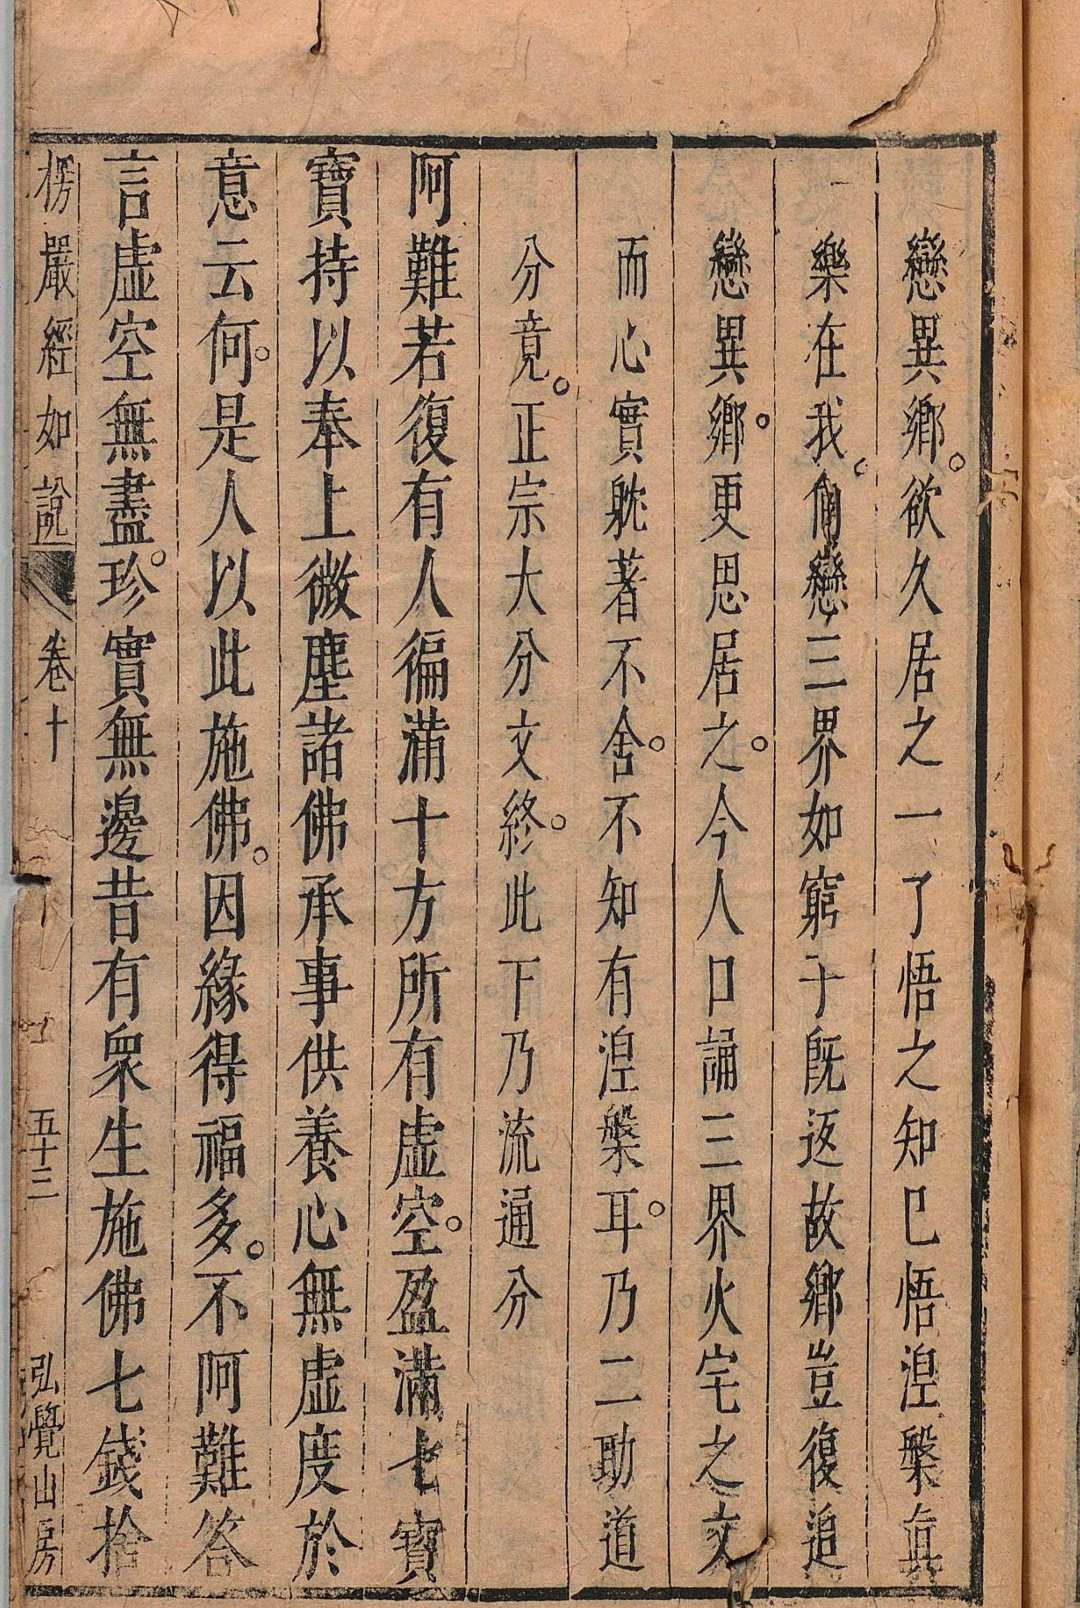 戀異鄉欲久居之一了悟之知巳悟湼槃眞
樂在我倘戀三界如窮子既返故鄉豈復追
戀異鄉更思居之今人口誦三界火宅之文
而心實躭著不舍不知有湼槃耳乃二助道
分竟正宗大分文終此下乃流通分
阿難若復有人徧滿十方所有虛空盈滿七寶
寶持以奉上微塵諸佛承事供養心無虛度於
意云何是人以此施佛因緣得福多不阿難答
言虛空無盡珍寶無邊昔有衆生施佛七錢捨
楞嚴經如說 卷十 五十三 弘覺山房